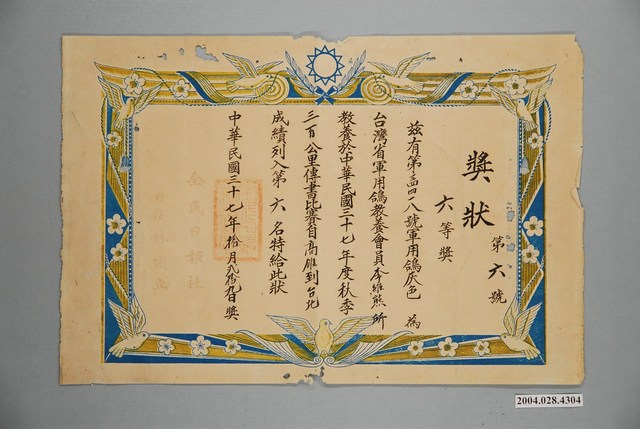 獎狀
第六號
六等獎
茲有第三四一八號軍用鴿灰色為
台灣省軍用鴿教養會員李維熊所
教養於中華民國三十七年度秋季
三百公里傳書比賽自高雄到台北
成績列入第六名特給此狀
中華民國三十七年拾月貳拾九日獎
全民日報社
2004.028.4304